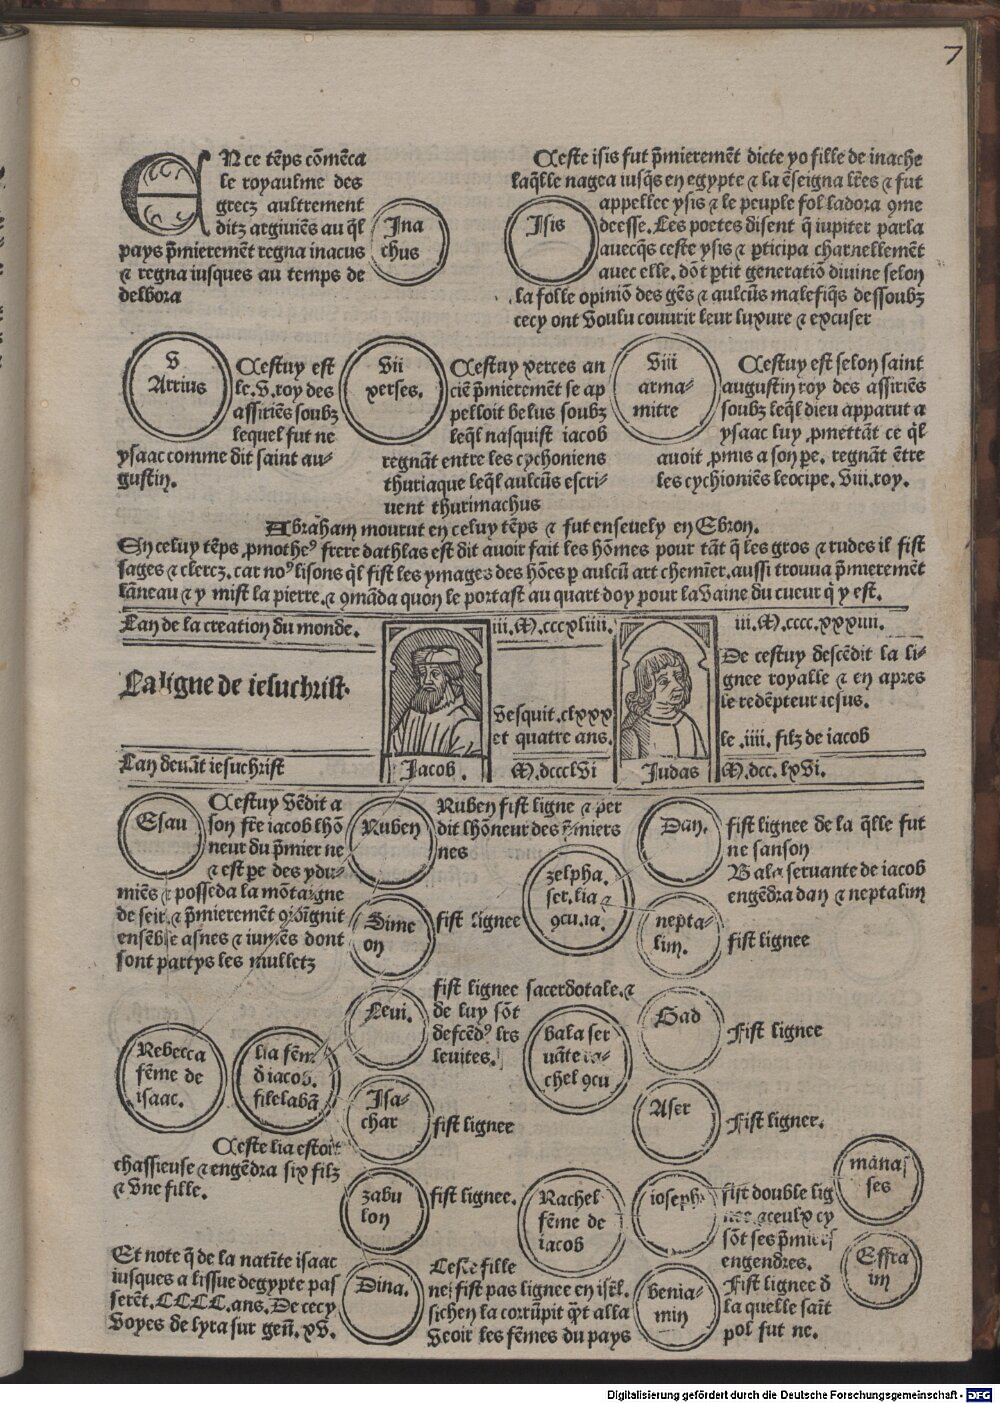 7
EN ce tẽps cõmẽca
le royaulme des
grecz aultrement
ditz argiuiẽs au q̃l
pays p̃mieremẽt regna inacus
⁊ regna iusques au temps de
delbora
Ina
chus
Isis
Ceste isis fut p̃mieremẽt dicte yo fille de inache
laq̃lle nagea iusq̃s en egypte ⁊ la ẽseigna lr̃es ⁊ fut
appellee ysis ⁊ le peuple fol ladora ꝯme
deesse. Les poetes disent q̃ iupiter parla
auecq̃s ceste ysis ⁊ ꝑticipa charnellemẽt
auec elle. dõt ꝑtit generatiõ diuine selon
la folle opiniõ des gẽs ⁊ aulcũs malefiq̃s dessoubz
cecy ont voulu couurir leur luxure ⁊ excuser
v
Arrius
Cestuy est
le.v.roy des
assiriẽs soubz
lequel fut ne
ysaac comme dit saint au-
gustin.
vii
xerses.
Cestuy xerces an
ciẽ p̃mieremẽt se ap
pelloit belus soubz
leq̃l nasquist iacob
regnãt entre les cychoniens
thuriaque leq̃l aulcũs escri-
uent thurimachus
viii
arma-
mitre
Cestuy est selon saint
augustin roy des assiriẽs
soubz leq̃l dieu apparut a
ysaac luy ꝓmettãt ce q̃l
auoit ꝓmis a son ꝑe. regnãt ẽtre
les cychioniẽs leocipe. viii.roy.
Abraham mourut en celuy tẽps ⁊ fut enseuely en Ebron.
En celuy tẽps ꝓmotheꝰ frere dathlas est dit auoir fait les hõmes pour tãt q̃ les gros ⁊ rudes il fist
sages ⁊ clercz. car noꝰ lisons q̃l fist les ymages des hões ꝑ aulcũ art chemiẽr. aussi trouua p̃mieremẽt
lãneau ⁊ y mist la pierre. ⁊ ꝯmãda quon le portast au quart doy pour la vaine du cueur q̃ y est.
Lan de la creation du monde.
iii.M.cccxliiii.
iii.M.cccc.xxxiiii.
La ligne de iesuchrist.
Vesquit.clxxx
et quatre ans.
De cestuy descẽdit la li-
gnee royalle ⁊ en apres
le redẽpteur iesus.
le .iiii. filz de iacob
Lan deuãt iesuchrist
Jacob.
M.dccclvi
Judas
M.dcc.lxvi.
Esau
Cestuy vẽdit a
son fr̃e iacob lhõ
neur du p̃mier ne
⁊ est ꝑe des ydu-
miẽs ⁊ posseda la mõtaigne
de seir. ⁊ p̃mieremẽt ꝯioignit
ensẽble asnes ⁊ iumẽs dont
sont partys les mulletz
Ruben
Ruben fist ligne ⁊ per
dit lhõneur des p̃miers
nes
Dan.
fist lignee de la q̃lle fut
ne sanson
Bala seruante de iacob
engẽdra dan ⁊ neptalim
zelpha.
ser.lia ⁊
ꝯcu.ia.
Sime
on
fist lignee
nepta-
lim.
fist lignee
Leui.
fist lignee sacerdotale. ⁊
de luy sõt
descẽdꝰ les
leuites.
bala ser
uãte ra-
chel ꝯcu
Gad
Fist lignee
Rebecca
fẽme de
isaac.
lia fẽm̃
d̃ iacob.
fille labã
Isa-
char
fist lignee
Aser
Fist lignee.
Ceste lia estoit
chassieuse ⁊ engẽdra six filz
⁊ vne fille.
zabu
lon
fist lignee.
Rachel
fẽme de
iacob
ioseph
fist double lig
nee ⁊ ceulx cy
sõt ses p̃miers
engendres.
mana
ses
Effra
im
Et note q̃ de la natĩte isaac
iusques a lissue degypte pas
serẽt. CCCC.ans. De cecy
voyes de lyra sur geñ. xv.
Dina.
Ceste fille
ne fist pas lignee en isr̃l.
sichen la corrũpit q̃t alla
veoir les fẽmes du pays
benia-
min
Fist lignee d̃
la quelle saĩt
pol fut ne.
Digitalisierung gefördert durch die Deutsche Forschungsgemeinschaft - DFG